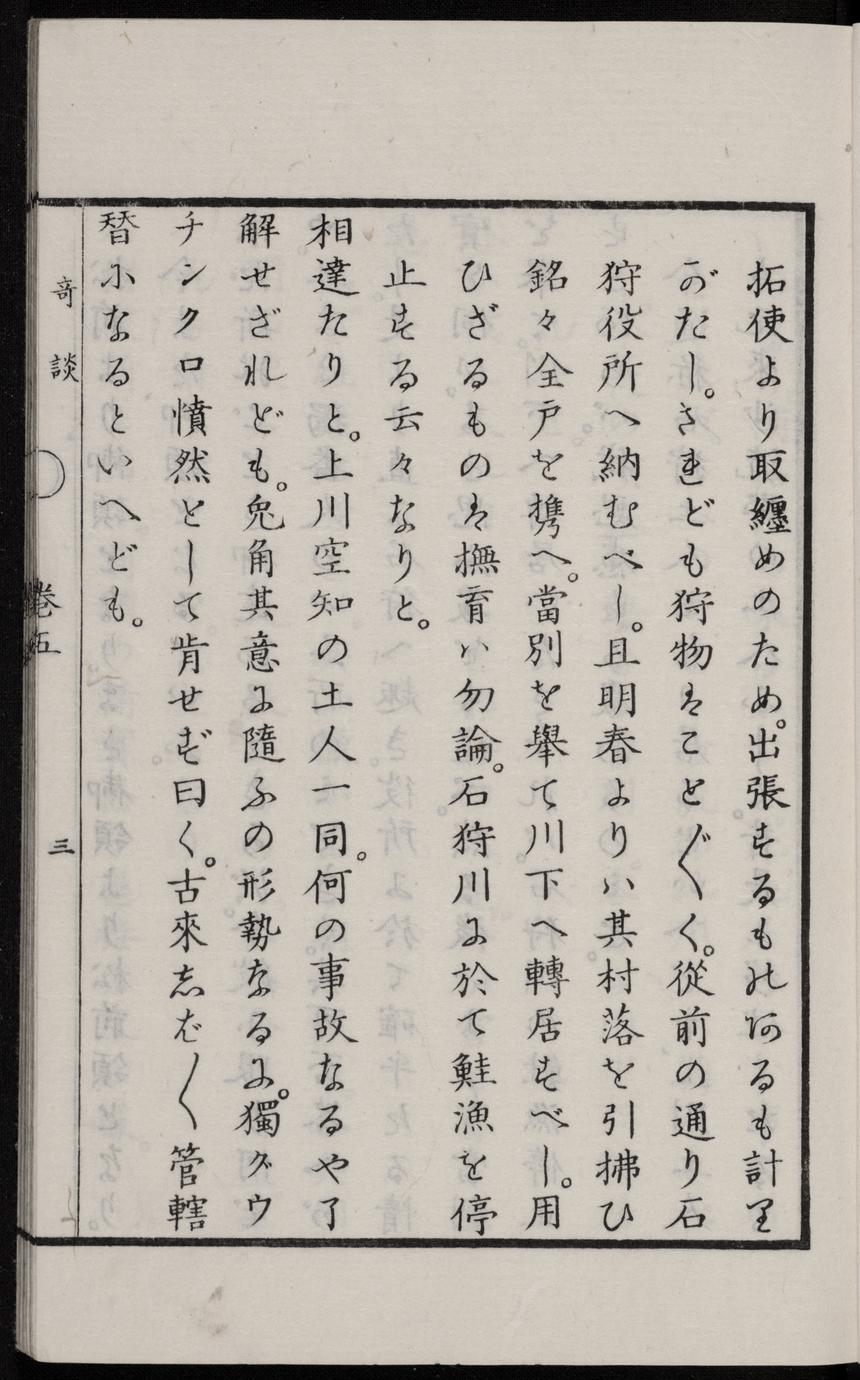 拓使より取纏めのため。出張するものあるも計り
がたし。されども狩物はこと〴〵く。從前の通り石
狩役所へ納むべし。且明春よりハ其村落を引拂ひ
銘々全戸を携へ。當別を擧て川下へ轉居すべし。用
ひざるものは撫育ハ勿論。石狩川に於て鮭漁を停
止する云々なりと。
相達たりと。上川空知の土人一同。何の事故なるや了
解せざれども。兔角其意に隨ふの形勢なるに。獨グウ
チンクロ憤然として肯せず曰く。古來志ば〳〵管轄
替になるといへども。
奇談
卷五
三